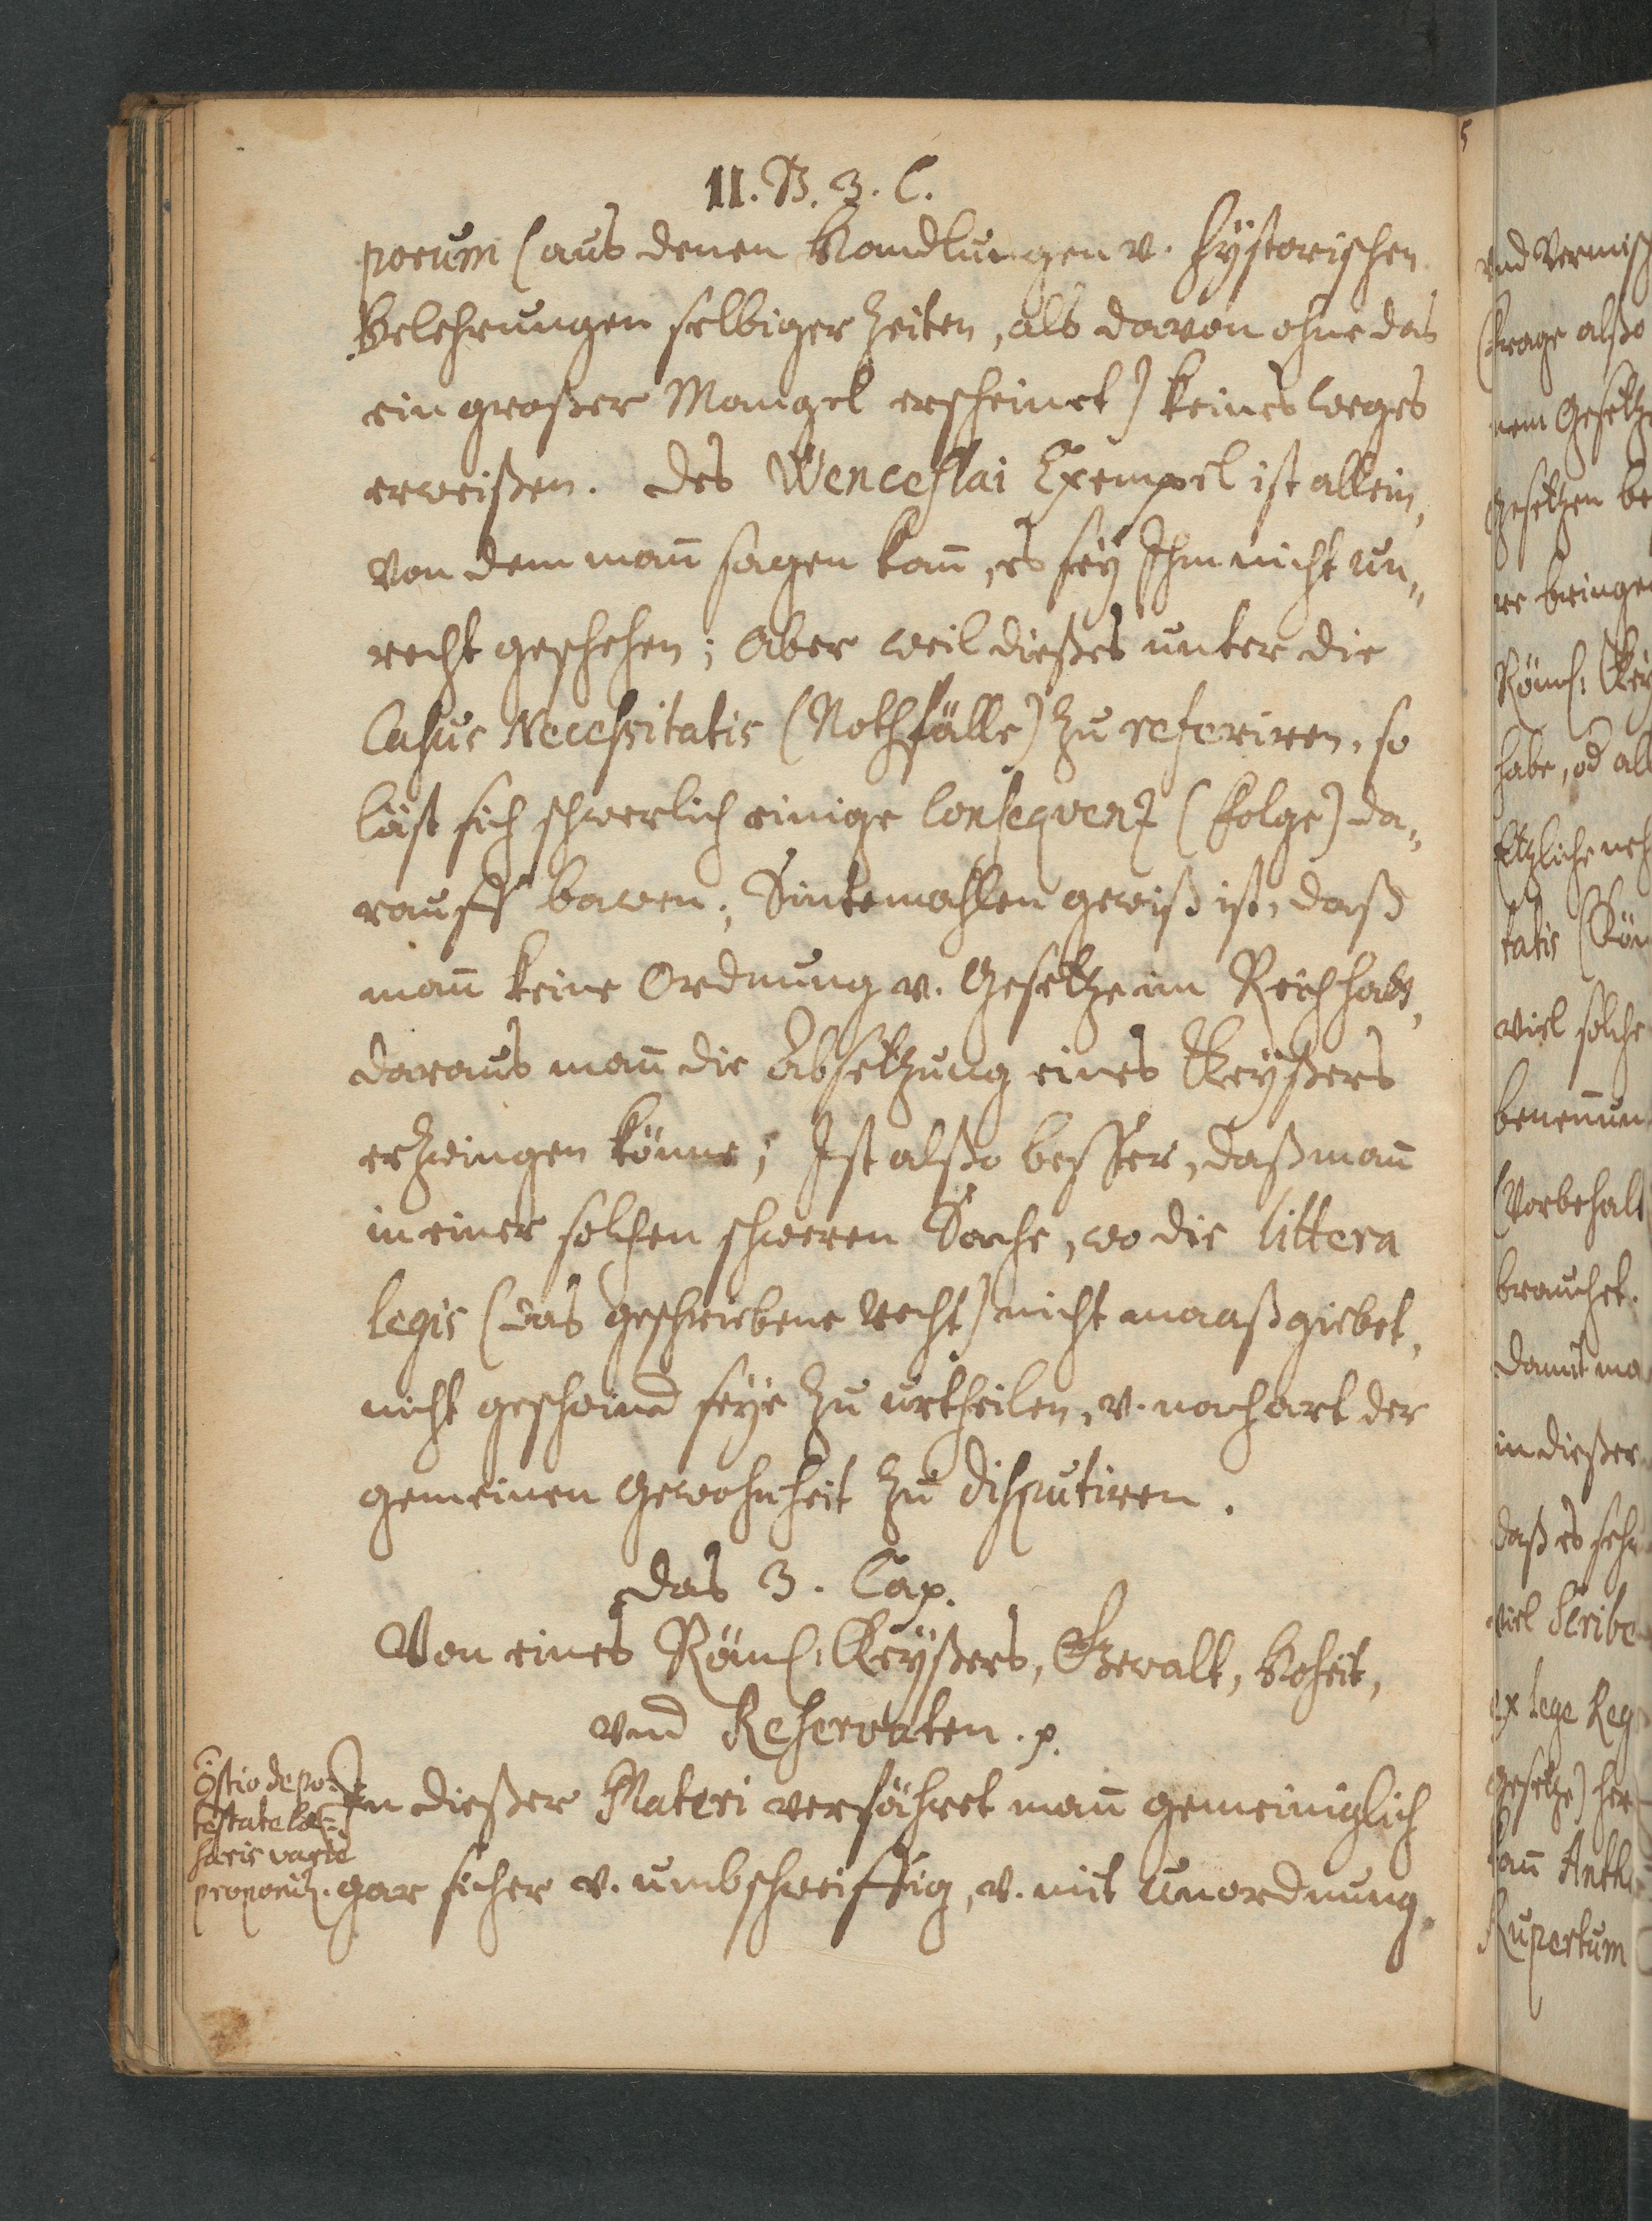 11. B. 3. C.
porum (aus denen Handlungen v. hystorischen
Belehrungen selbiger Zeiten, als davon ohne das
ein großer Mangel erscheinet) keines weges
erweißen. Des Wenceslai Exempel ist allein,
von dem man̄ sagen kan̄, es sey Ihm nicht un„
recht geschehen; Aber weil dießes unter die
Casus Necessitatis (Nothfälle) zu referiren, so
läst sich schwerlich einige Consequenz (folge) da„
rauff bawen; Sintemahlen gewiß ist, daß
man̄ keine Ordnung v. Gesetze im Reich habe,
daraus man̄ die Absetzung eines Keyßers
erzwingen könne; Ist alßo besser, daß man̄
in einer solchen schweren Sache, wo die littera
legis (das geschriebene recht) nicht maaß giebet,
nicht geschwind seye zu urtheilen, v. nach art der
gemeinen Gewohnheit zu disputiren.
Das 3. Cap.
Von eines Röm: Keyßers, Gewalt, Hoheit,
vnd Reservaten. p.
In dießer Materi verfähret man̄ gemeiniglich
gar sicher v. umbschweiffig, v. mit Unordnung
Qstio de po=
testate Cae=
saris varie
proponit.
vnd vermisch
(trage alßo
nem Gesetze
Gesetzen be
re bringe
Röm: Key
habe, od all
tatis (Kön
viel solche
benennun
(Vorbehalt
brauchet.
Damit ma
in dießer
daß es sehr
viel Scribe
ex lege Reg
Gesetze) her
kan̄ Anth
Rupertum